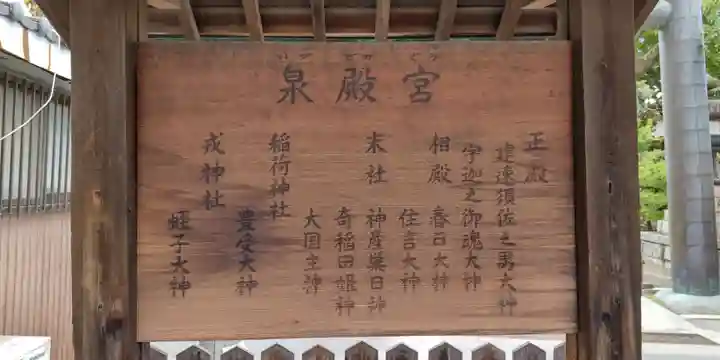 泉殿宮
正殿
建速須佐之男大神
宇迦之御魂大神
相殿
春日大神
住吉大神
末社
神産巣日神
奇稲田姫神
大国主神
稲荷神社
豊受大神
戎神社
蛭子大神